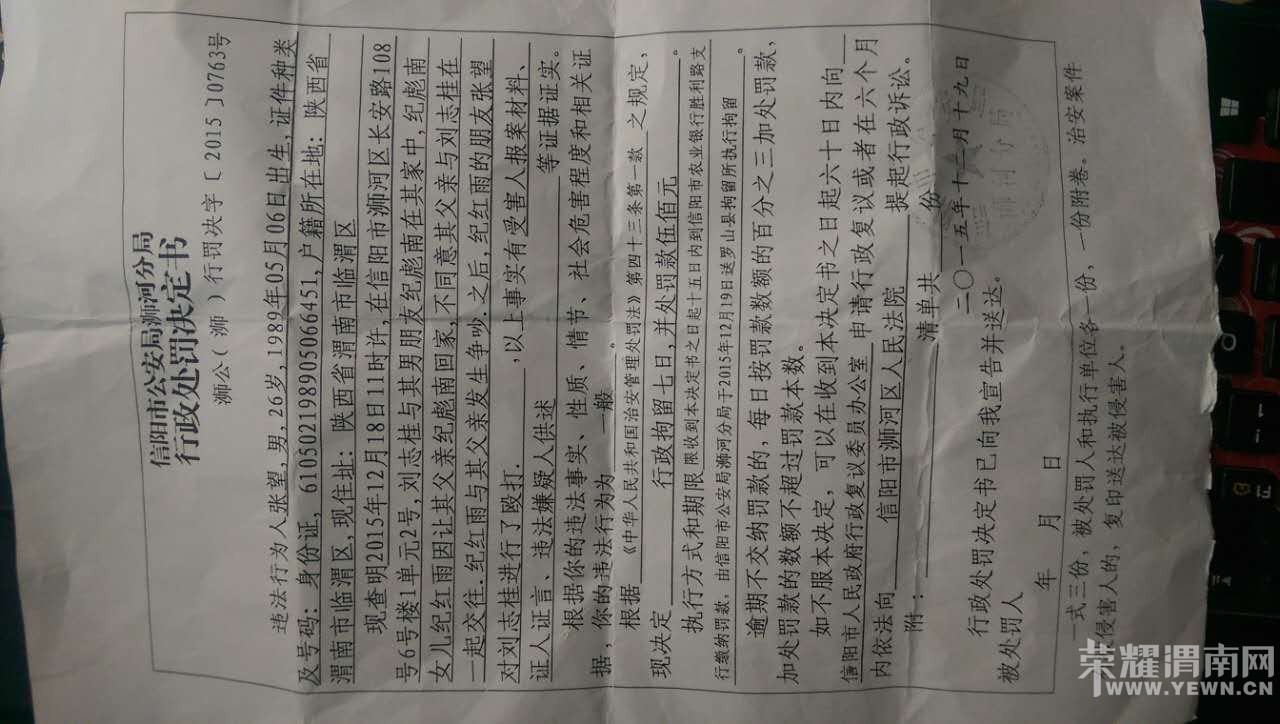 信阳市公安局浉河分局
行政处罚决定书
浉公（浉）行罚决字〔2015〕0763号
违法行为人张望,男,26岁,1989年05月06日出生,证件种类
及号码：身份证，610502198905066451,户籍所在地：陕西省
渭南市临渭区,现住址：陕西省渭南市临渭区
现查明2015年12月18日11时许,在信阳市浉河区长安路108
号6号楼1单元2号,刘志桂与其男朋友纪彪南在其家中,纪彪南
女儿纪红雨因让其父亲纪彪南回家,不同意其父亲与刘志桂在
一起交往.纪红雨与其父亲发生争吵.之后,纪红雨的朋友张望
对刘志桂进行了殴打.，以上事实有受害人报案材料、
证人证言、违法嫌疑人供述等证据证实。
根据你的违法事实、性质、情节、社会危害程度和相关证
据，你的违法行为为一般。
根据《中华人民共和国治安管理处罚法》第四十三条第一款之规定，
现决定行政拘留七日,并处罚款伍佰元。
执行方式和期限限收到本决定书之日起十五日内到信阳市农业银行胜利路支
行缴纳罚款，由信阳市公安局浉河分局于2015年12月19日送罗山县拘留所执行拘留。
逾期不交纳罚款的，每日按罚款数额的百分之三加处罚款，
加处罚款的数额不超过罚款本数。
如不服本决定，可以在收到本决定书之日起六十日内向
信阳市人民政府行政复议委员办公室申请行政复议或者在六个月
内依法向信阳市浉河区人民法院提起行政诉讼。
附：清单共份
二〇一五年十二月十九日
浉河分局
行政处罚决定书已向我宣告并送达。
被处罚人
年 月 日
一式三份，被处罚人和执行单位各一份，一份附卷。治安案件
侵害人的，复印送达被侵害人。
荣耀渭南网
WWW.YEWN.CN